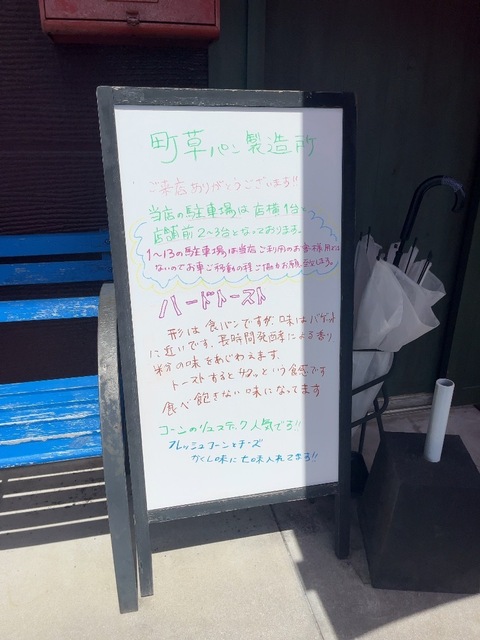 町草パン製造所
ご来店ありがとうございます!!
当店の駐車場は店横1台と
店舗前2〜3台となっております。
1〜13の駐車場は当店ご利用のお客様用では
ないのでお車ご移動の程ご協力お願い致します。
ハードトースト
形は食パンですが、味はバゲット
に近いです。長時間発酵による香り
粉の味をあじわえます。
トーストするとサクッという食感です
食べ飽きない味になってます
コーンのリュスティック人気です!!
フレッシュコーンとチーズ
かくし味に七味入れてます!!